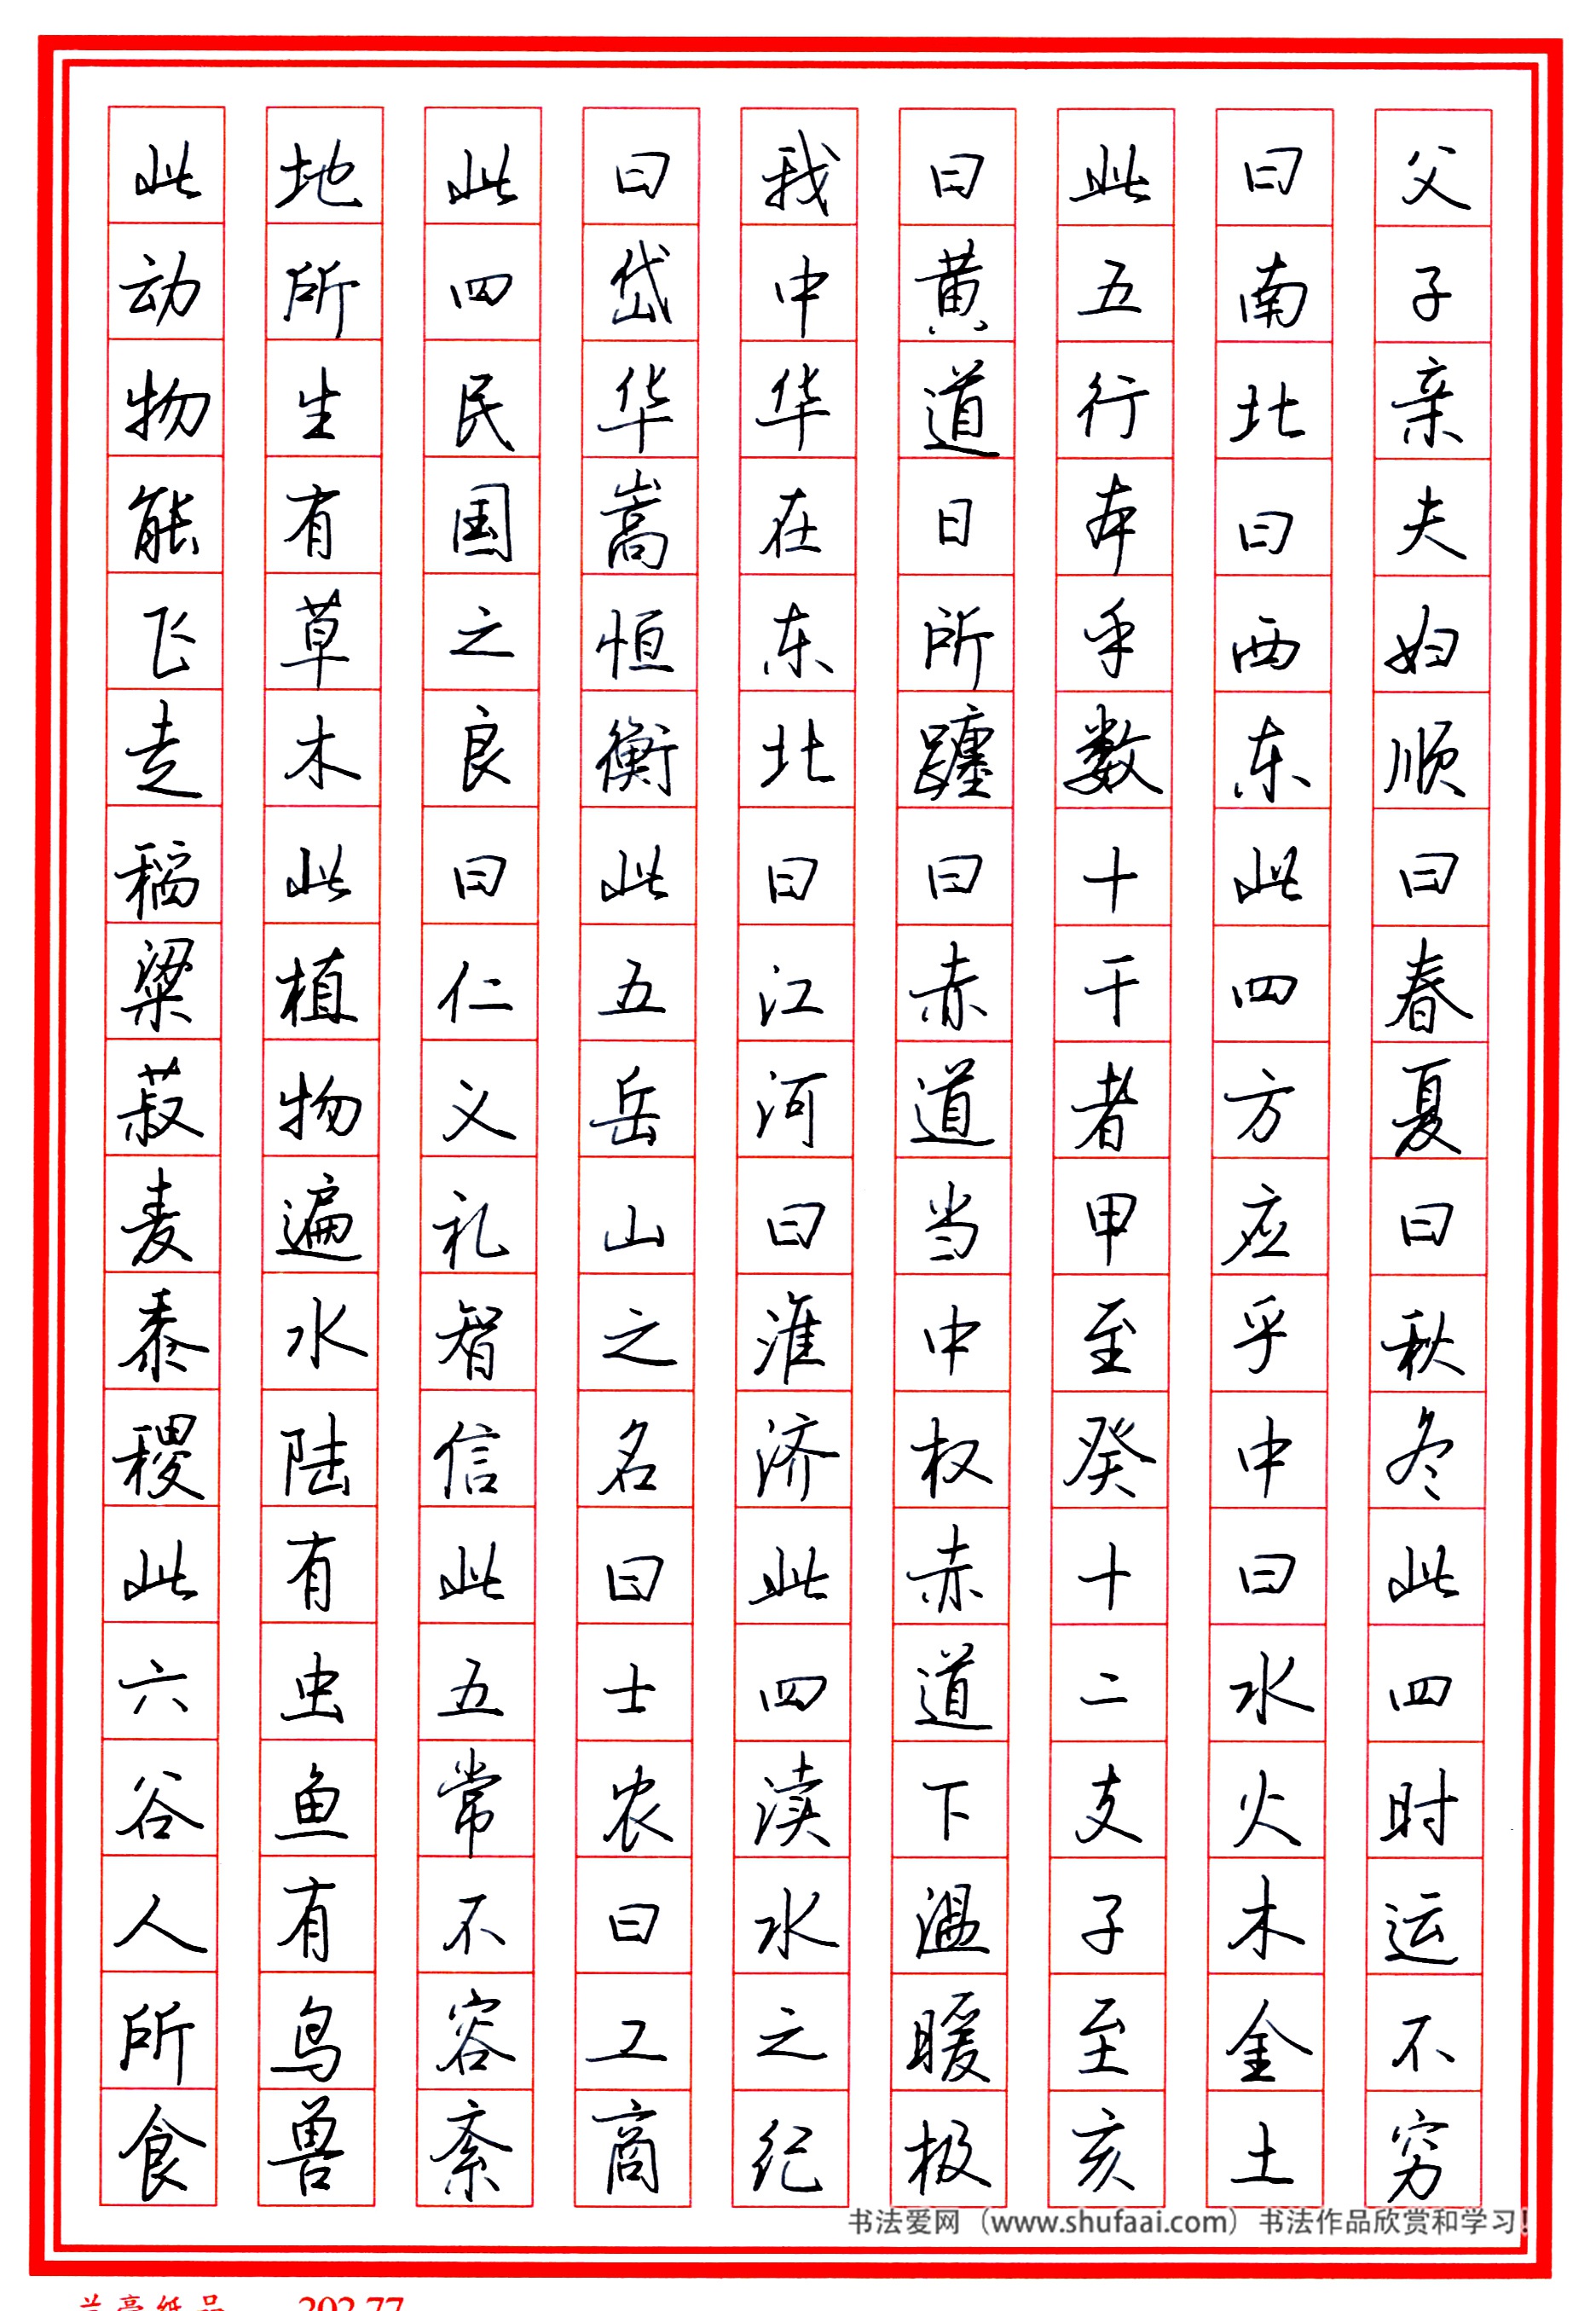 父子亲夫妇顺曰春夏曰秋冬此四时运不穷
曰南北曰西东此四方应乎中曰水火木金土
此五行本乎数十干者甲至癸十二支子至亥
曰黄道日所躔曰赤道当中权赤道下温暖极
我中华在东北曰江河曰淮济此四渎水之纪
曰岱华嵩恒衡此五岳山之名曰士农曰工商
此四民国之良曰仁义礼智信此五常不容紊
地所生有草木此植物遍水陆有虫鱼有鸟兽
此动物能飞走稻粱菽麦黍稷此六谷人所食
书法爱网（www.shufaai.com）书法作品欣赏和学习！